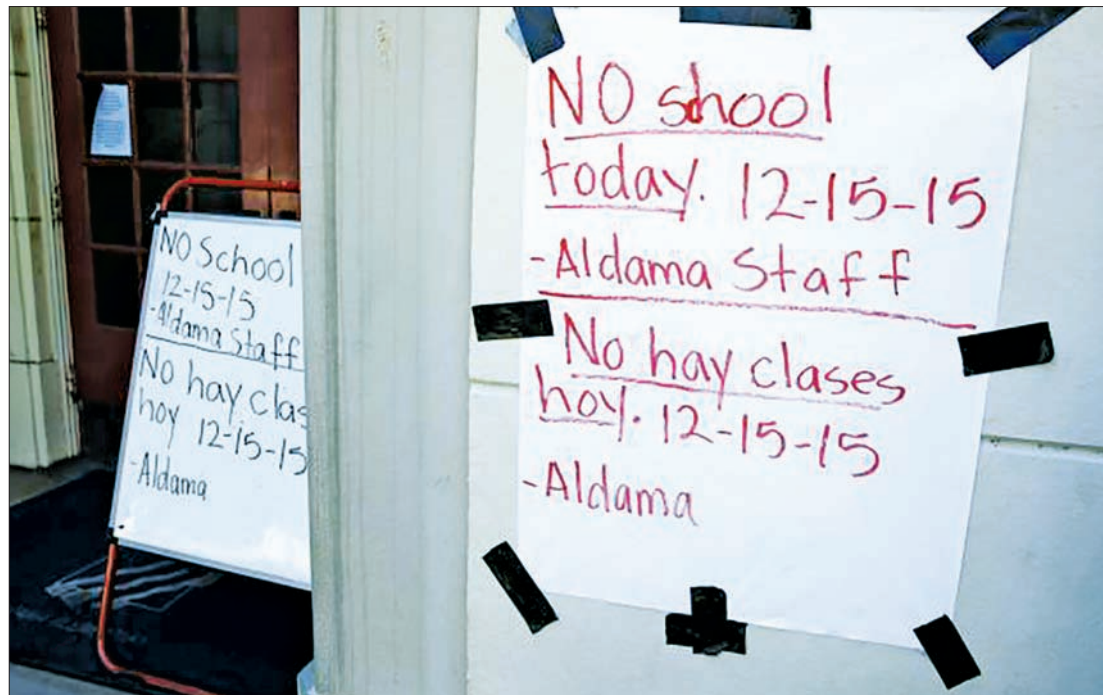 NO School
12-15-15
-Aldama Staff
No hay clas
hoy 12-15-15
-Aldama
NO school
today. 12-15-15
-Aldama Staff
No hay clases
hoy. 12-15-15
-Aldama